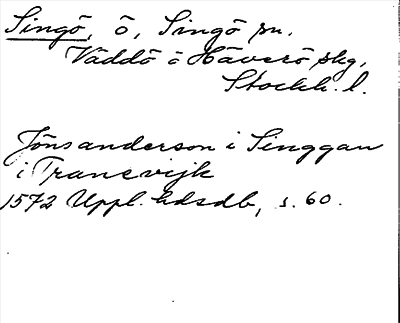 Singö, ö, Singö sn.
Väddö o Häverö skg,
Stockh. l.
Jöns anderson i Singgan
i Tranevijk
1572 Uppl. hdsdb, s. 60.